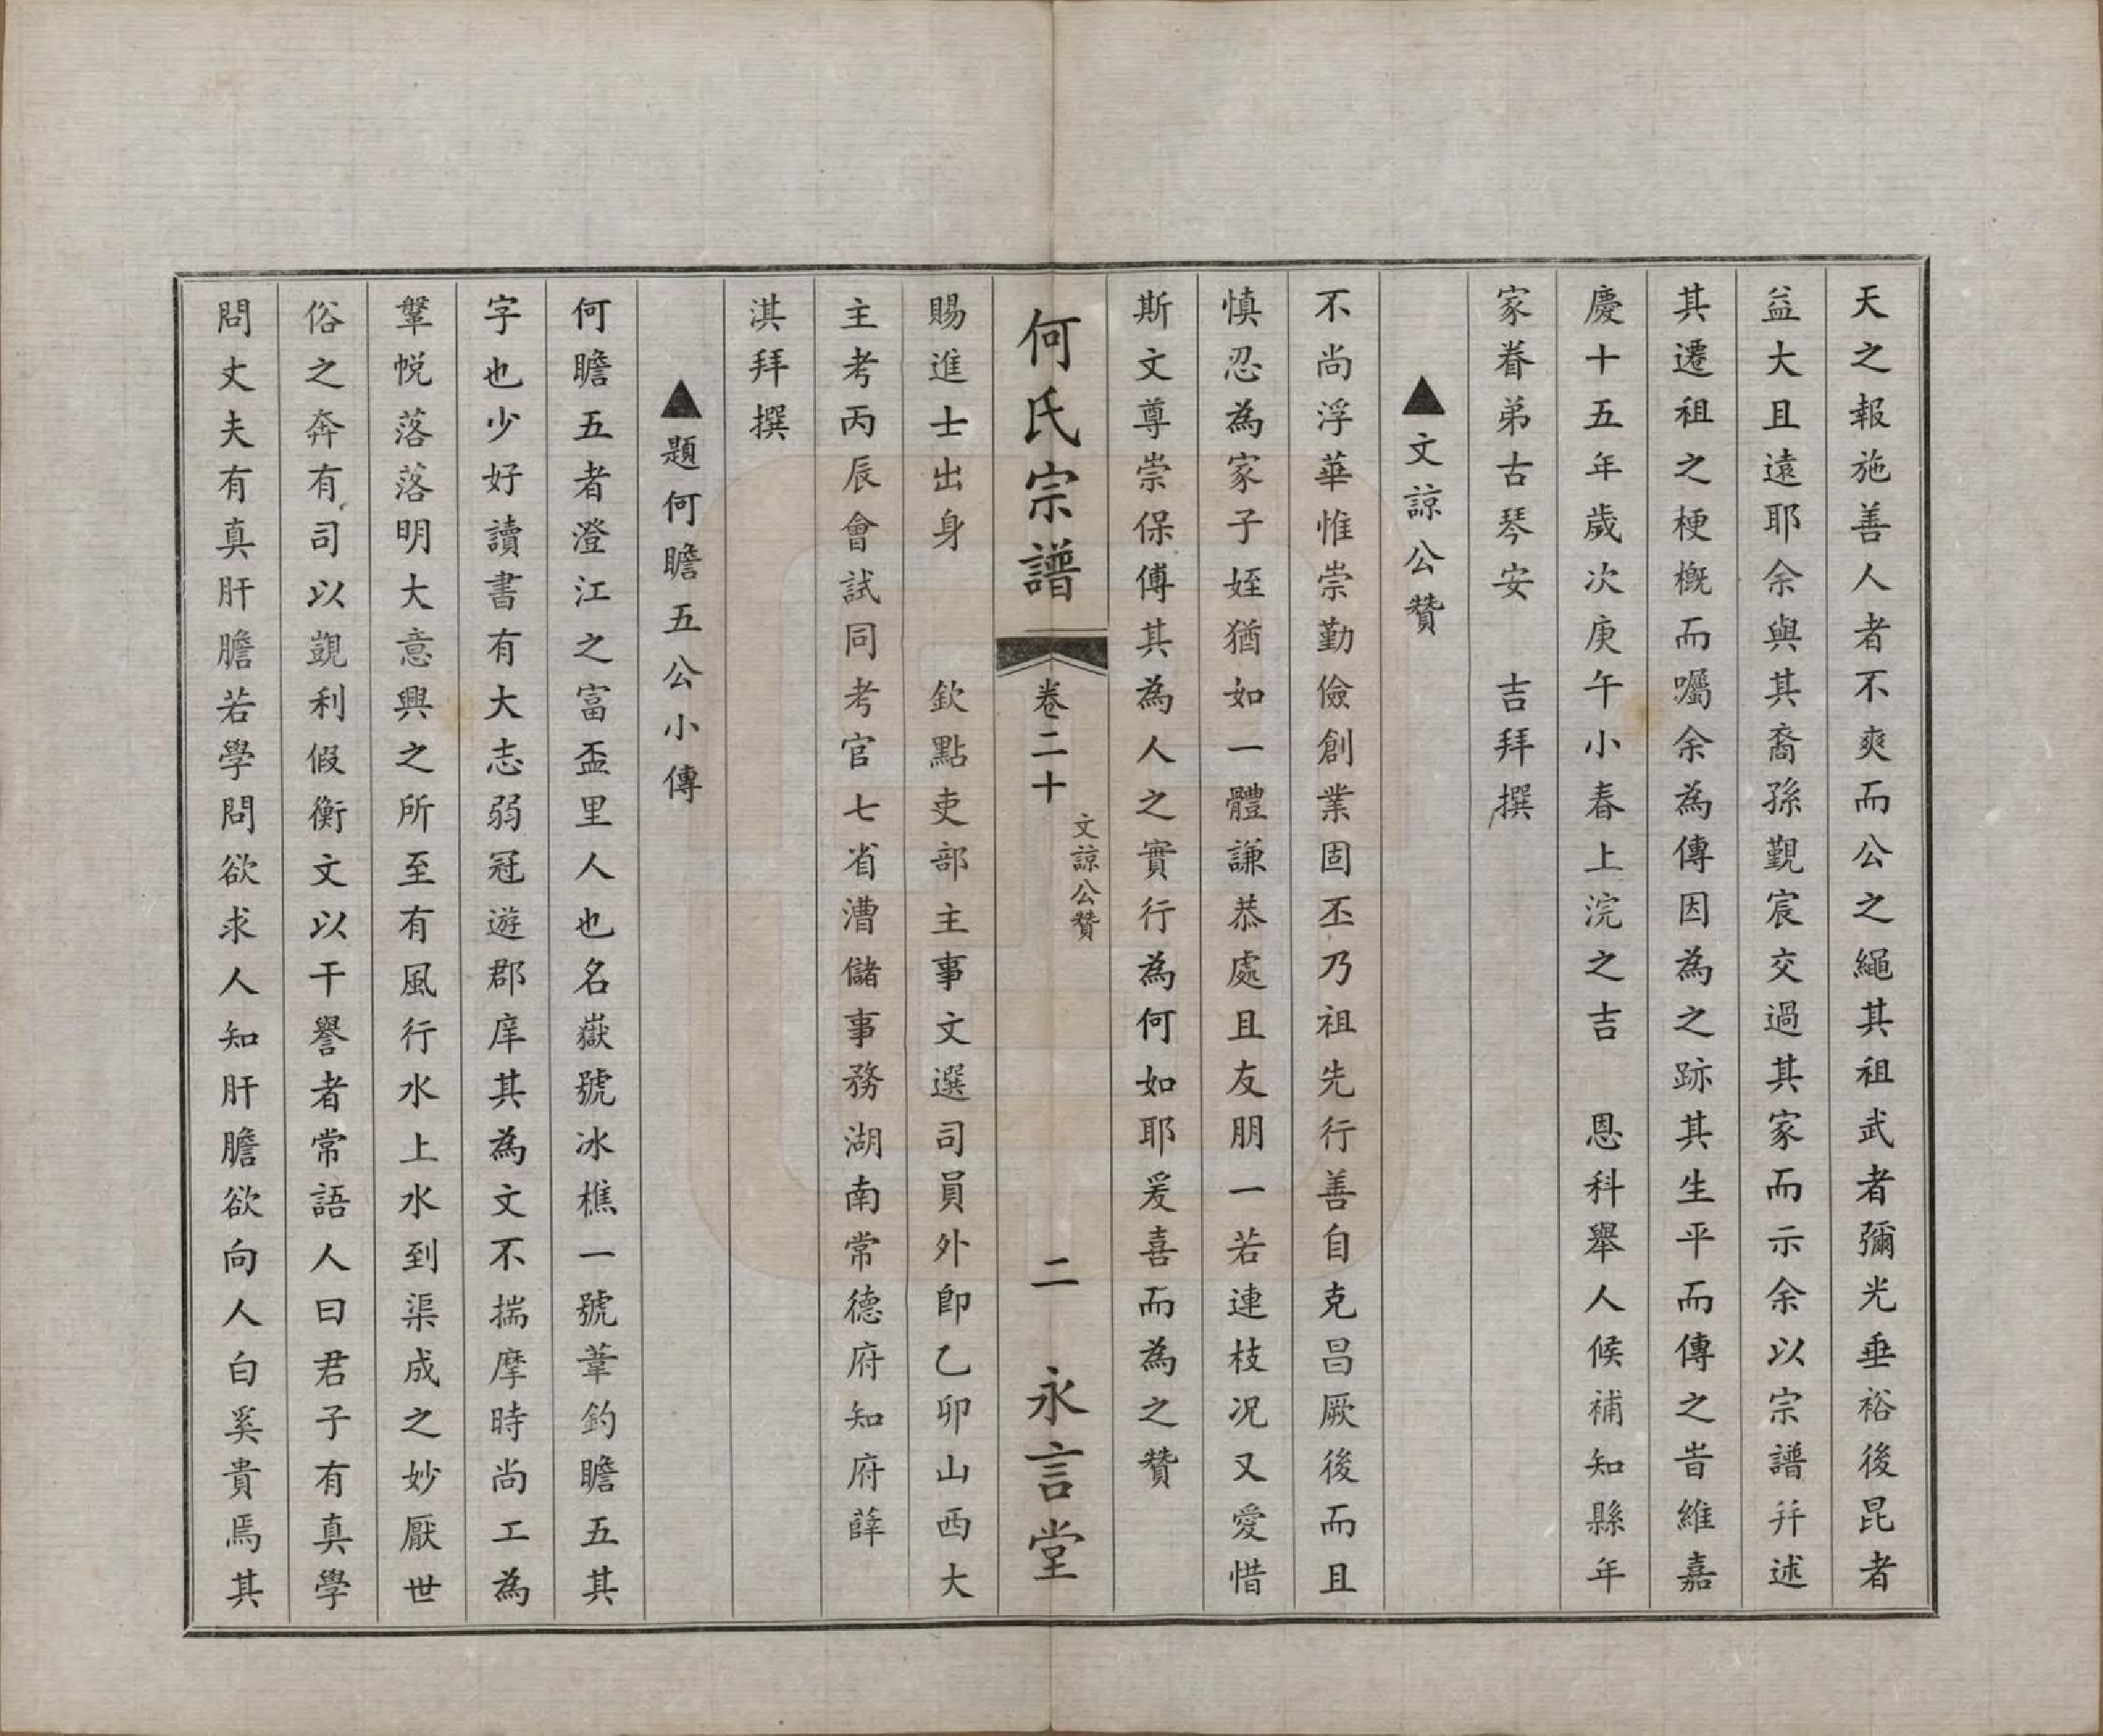 天之報施善人者不爽而公之繩其祖武者彌光垂裕後昆者
益大且遠耶余與其裔孫覲宸交過其家而示余以宗譜幷述
其遷祖之梗概而囑余為傳因為之跡其生平而傳之旹維嘉
慶十五年歲次庚午小春上浣之吉　恩科舉人候補知縣年
家眷弟古琴安　吉拜撰
▲文諒公贊
不尚浮華惟崇勤儉創業固丕乃祖先行善自克昌厥後而且
慎忍為家子姪猶如一體謙恭處且友朋一若連枝况又愛惜
斯文尊崇保傅其為人之實行為何如耶爰喜而為之贊
何氏宗譜　卷二十　文諒公贊　二　永言堂
賜進士出身　欽點吏部主事文選司員外郎乙卯山西大
主考丙辰會試同考官七省漕儲事務湖南常德府知府薛
淇拜撰
▲題何瞻五公小傳
何瞻五者澄江之富盃里人也名嶽號冰樵一號葦釣瞻五其
字也少好讀書有大志弱冠遊郡庠其為文不揣摩時尚工為
鞶帨落落明大意興之所至有風行水上水到渠成之妙厭世
俗之奔有司以覬利假衡文以干譽者常語人曰君子有真學
問丈夫有真肝膽若學問欲求人知肝膽欲向人白奚貴焉其